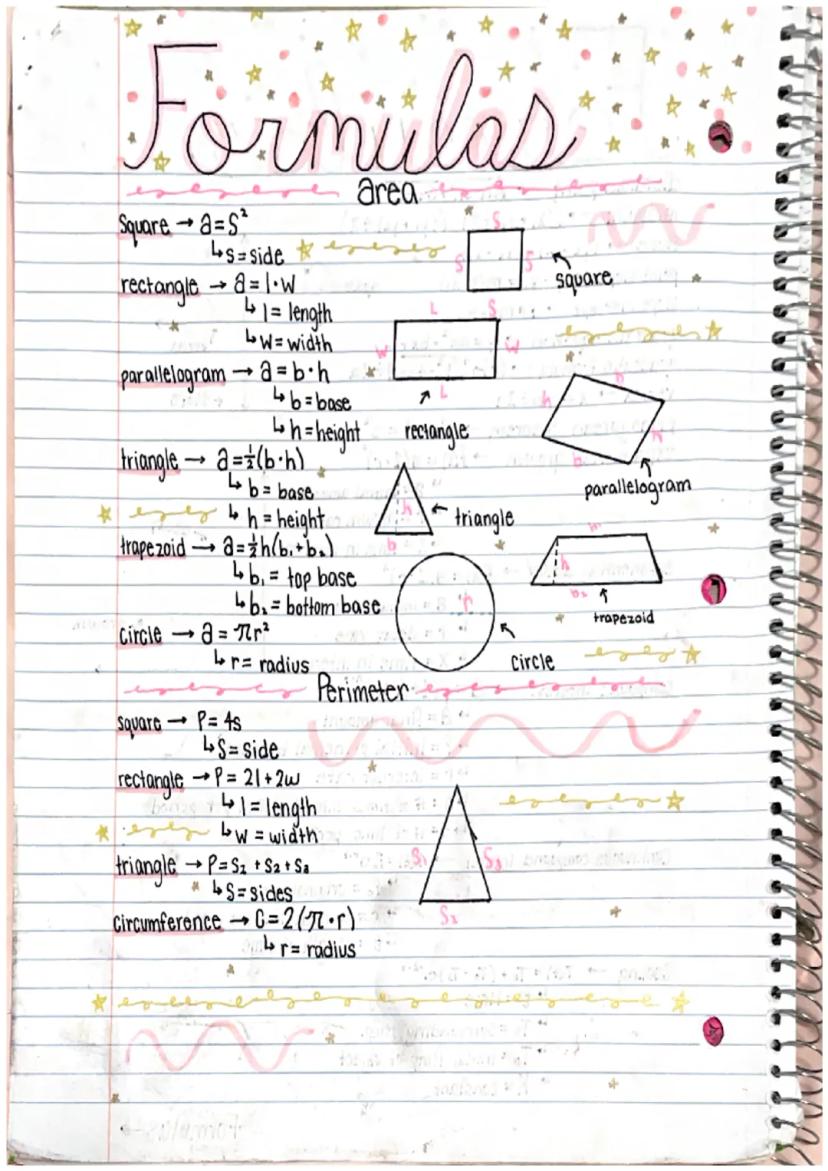 Formulas
area
Square → a = S²
↳ s = side
rectangle → a = l · w
↳ l = length
↳ W = width
parallelogram → a = b · h
↳ b = base
↳ h = height
triangle → a = ½(b · h)
↳ b = base
↳ h = height
trapezoid → a = ½h(b₁ + b₂)
↳ b₁ = top base
↳ b₂ = bottom base
circle → a = πr²
↳ r = radius
S
S S
← square
L S
W W
L
rectangle
h
b
parallelogram
h
b
← triangle
h
b₂
trapezoid
r
circle
Perimeter
square → P = 4s
↳ S = side
rectangle → P = 2l + 2w
↳ l = length
↳ W = width
triangle → P = S₁ + S₂ + S₃
↳ S = sides
S₁ S₃
S₂
circumference → C = 2(π · r)
↳ r = radius